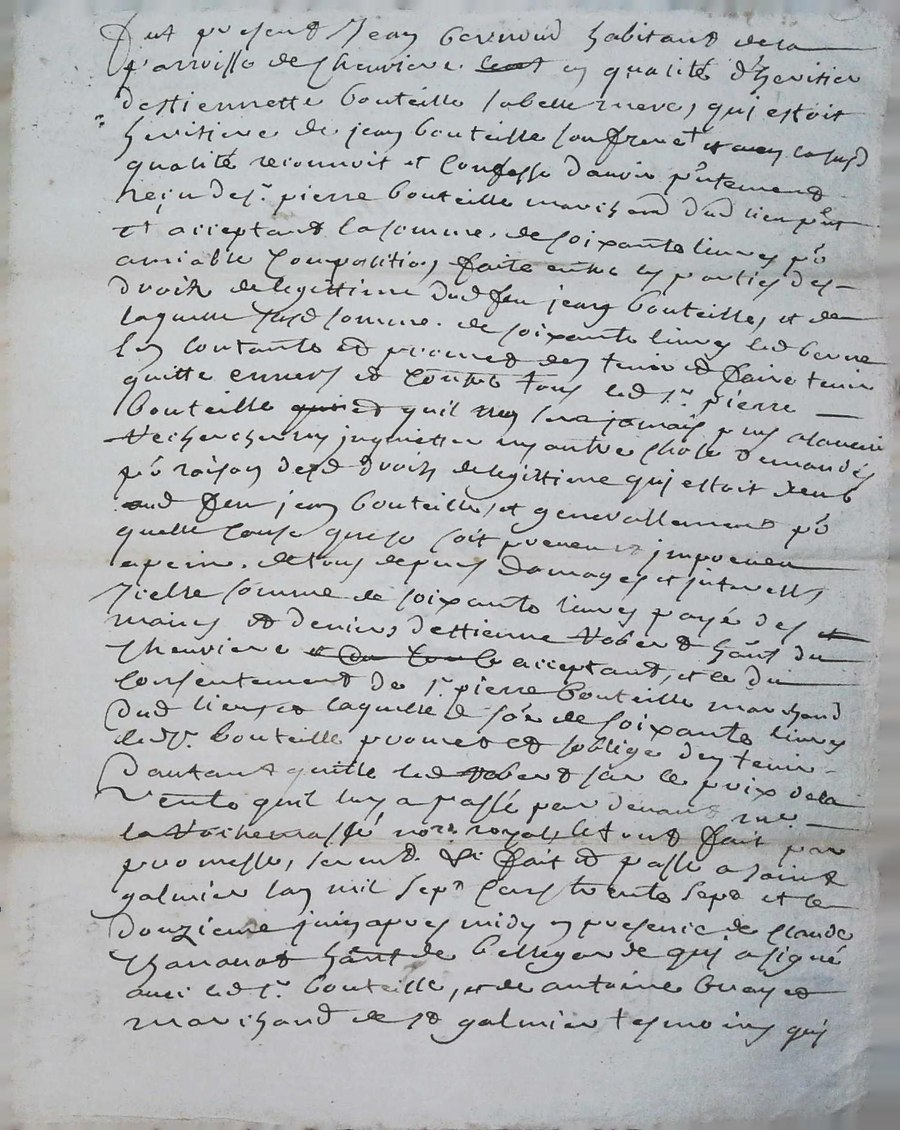 Fut present Jean bernoud habitant dela
parroisse de Chevriere en qualité d'heritier
destiennette bouteille sa belle mere, qui estoit
heritiere de jean bouteille son frere et
qualité reconnoit et confesse d'avoir p'ntement
reçu de sr. pierre bouteille marchand dud lieu p'nt
et acceptant la somme de soixante livres p'r
amiable composition faite entre les parties des
droits de legittime dud feu jean bouteille, et de
laquelle susd somme de soixante livres led berno
content et promet den tenir et faire tenir
quitte envers et contre tous led sr. pierre
bouteille quil ne sera jamais plus
recherché ny inquietté ny autre chose demandés
p'r raison desd droits delegittime qui estoit deub
aud feu jean bouteille, et generallement p'r
quelle cause que ce soit preveue impreveu
a peine de tous depens domages et interests
icelle somme de soixante livres payé des
mains et deniers destienne Robert ha'nt du
Chevriere acceptant, et ce du
consentement de sr. pierre bouteille marchand
dud lieu et laquelle so'e de soixante livres
led sr. bouteille promet et soblige den tenir
dautant quitte led Robert sur le prix dela
vente quil luy a passé par devant me
la Rochemassé nore. royal, le tout fait par
promesse, serm't. &c fait et passé a saint
galmier lan mil sept cens trente sept et le
douzieme juin apres midy en presence de claude
ha'nt de bellegarde qui a signé
avec led sr. bouteille, et de antoine
marchand de st galmier tesmoins qui